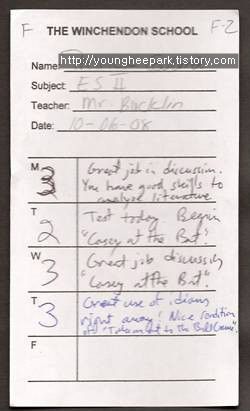 F
F-2
THE WINCHENDON SCHOOL
http://youngheepark.tistory.com
Name:
Subject: ES II
Teacher: Mr. Bucklin
Date: 10-06-08
M 3 Great job in discussion.
You have good skills to
analyze literature.
T 2 Test today. Begin
"Casey at the Bat".
W 3 Great job discussing
"Casey at the Bat".
T 3 Great use of idioms
right away! Nice rendition
of "Take me out to the Ball Game".
F